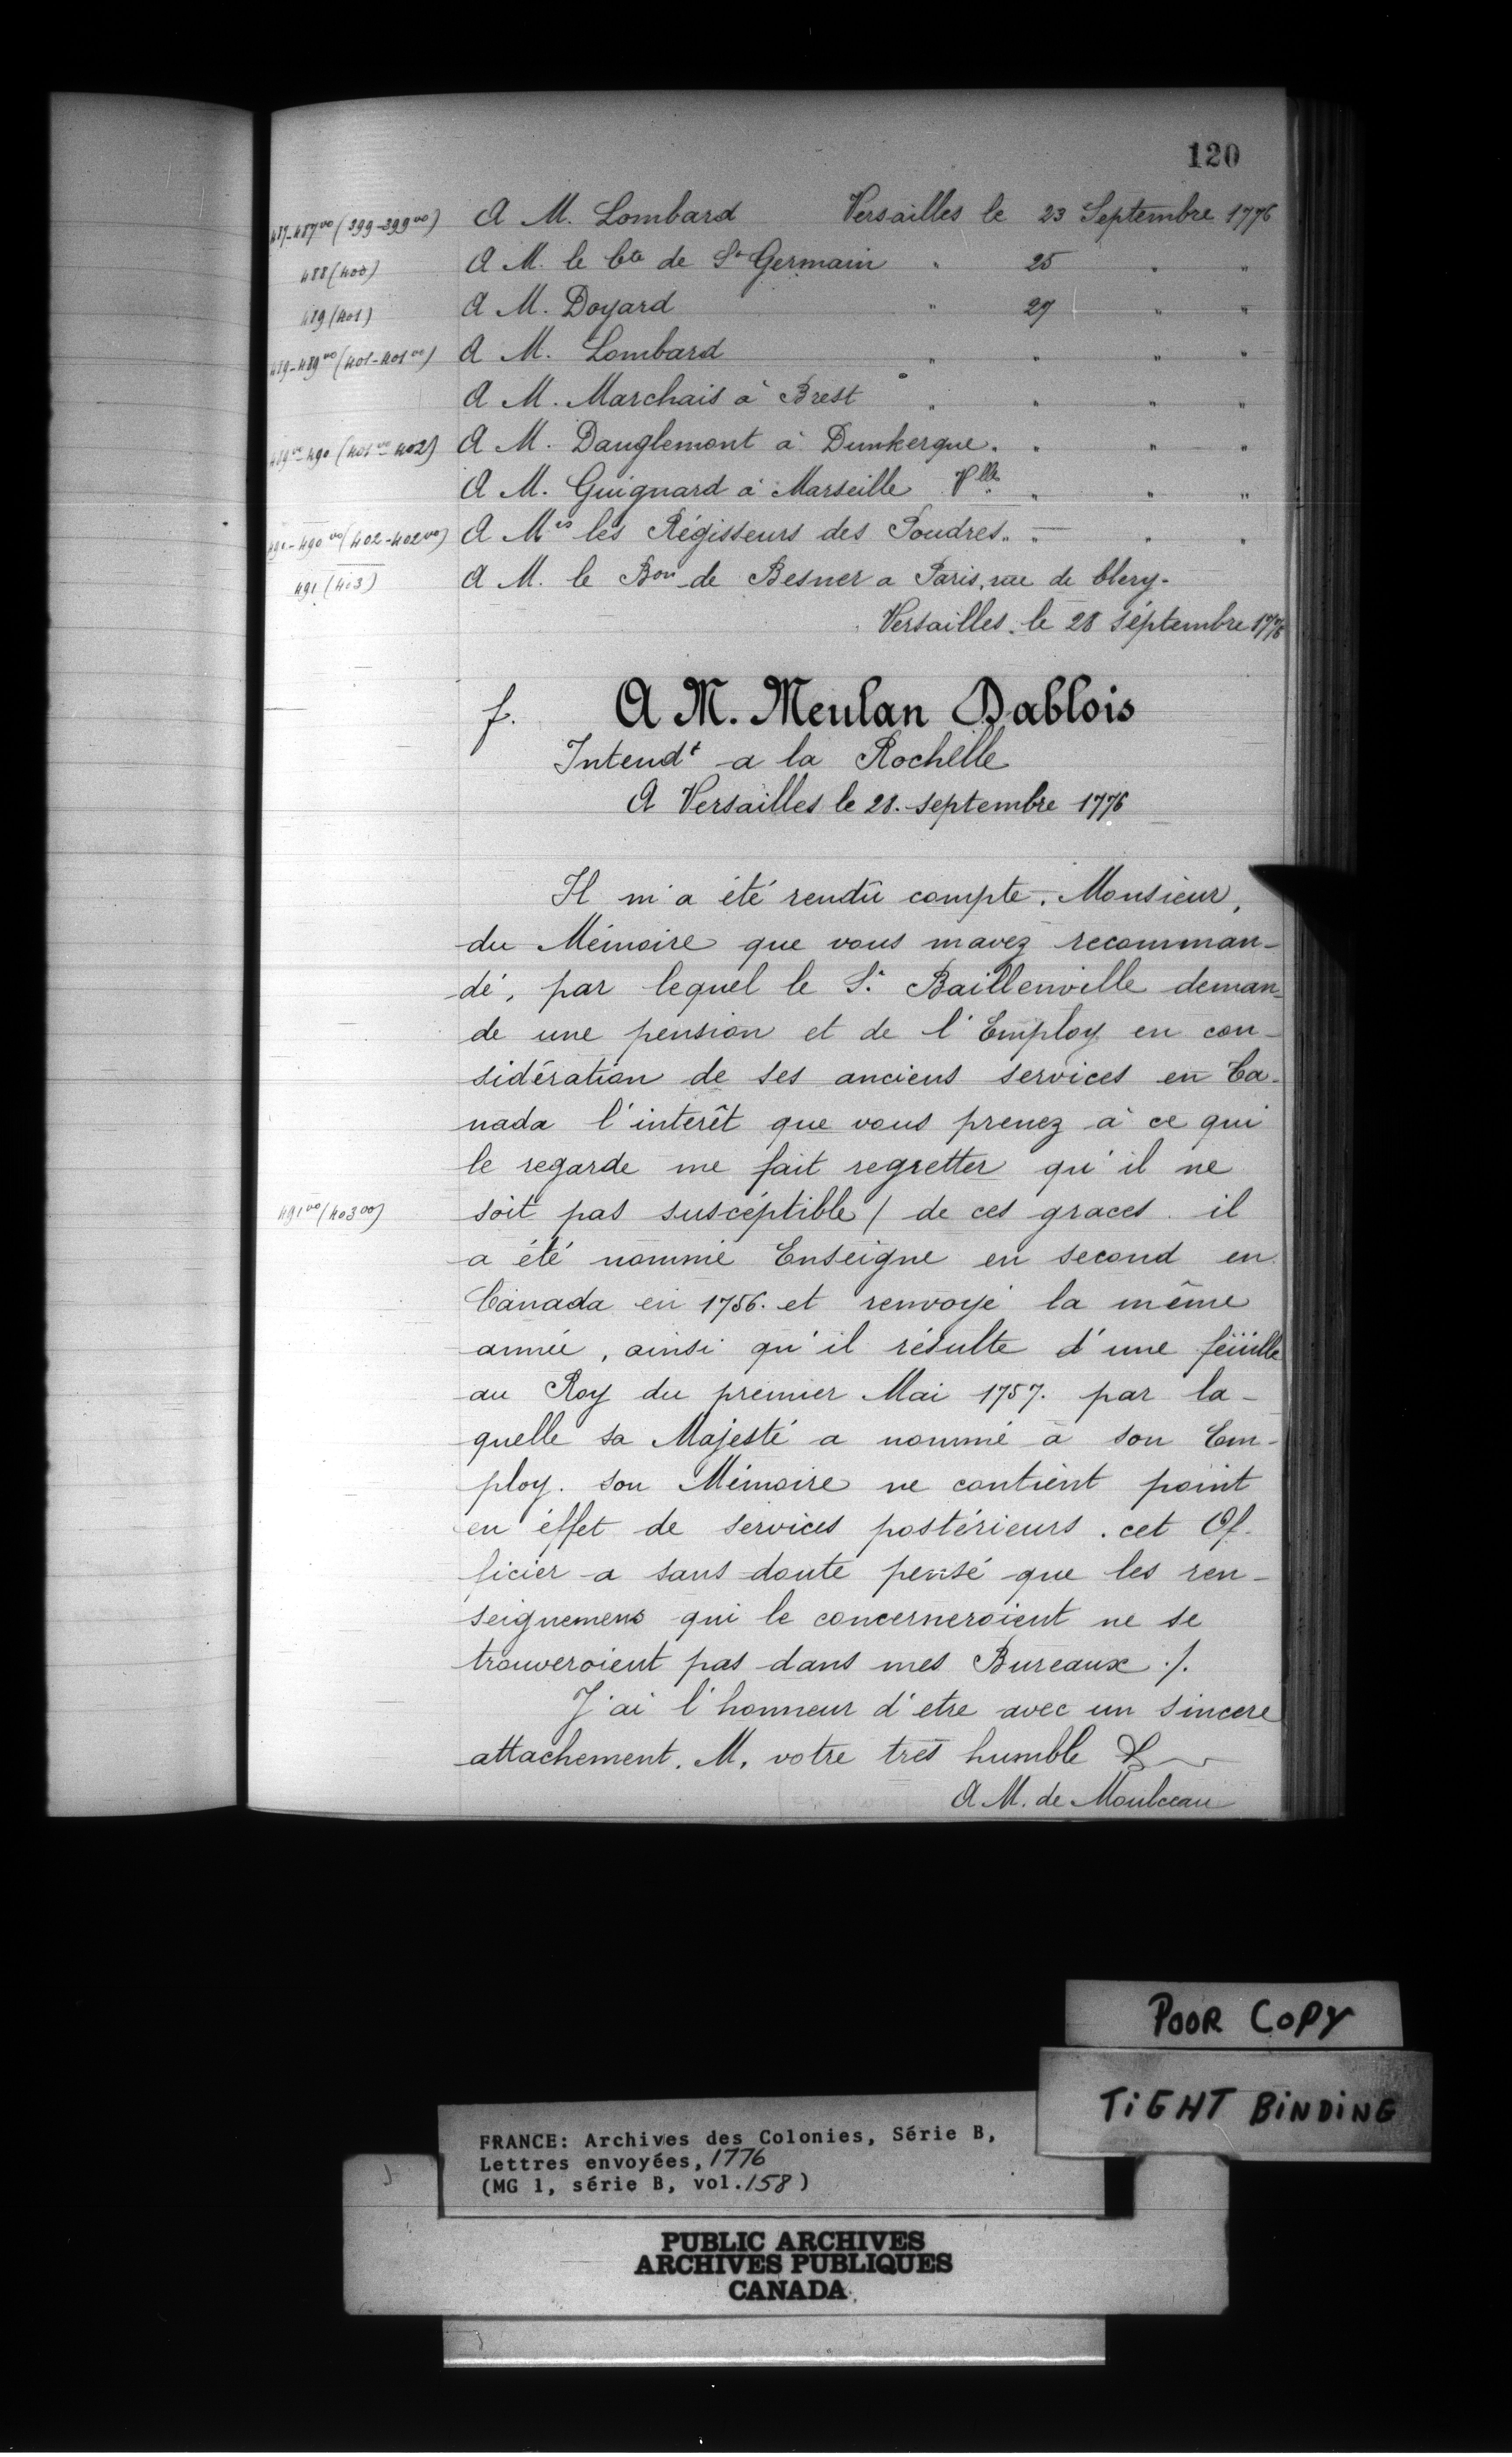 120
487-487vo (399-399vo) A M. Lombard Versailles le 23 Septembre 1776
488 (400) A M. le Cte de St Germain " 25 " "
489 (401) A M. Doyard " 27 " "
489-489vo (401-401vo) A M. Lombard " " " "
A M. Marchais à Brest " " " "
489vo-490 (401vo-402) A M. Dauglemont à Dunkerque. " " "
A M. Guignard à Marseille Vlles " " "
490-490vo (402-402vo) A Mrs les Régisseurs des Poudres. " " "
491 (403) A M. le Bon de Besner a Paris, rue de Clery.
Versailles. le 28 septembre 1776
f. A M. Meulan Dablois
Intendt a la Rochelle
A Versailles le 28. septembre 1776
Il m'a été rendû compte, Monsieur,
du Mémoire que vous mavez recomman-
dé, par lequel le Sr. Baillenville deman-
de une pension et de l'Employ en con-
sidération de ses anciens services en Ca-
nada l'interêt que vous prenez à ce qui
le regarde me fait regretter qu'il ne
491vo (403vo) soit pas suscéptible / de ces graces. il
a été nommé Enseigne en second en
Canada en 1756. et renvoyé la même
année, ainsi qu'il résulte d'une feüille
au Roy du premier Mai 1757. par la-
quelle sa Majesté a nommé à son Em-
ploy. son Mémoire ne contient point
en éffet de services postérieurs. cet Of-
ficier a sans doute pensé que les ren-
seignemens qui le concerneroient ne se
trouveroient pas dans mes Bureaux ./.
J'ai l'honneur d'etre avec un sincere
attachement, M, votre très humble &
A M. de Moulceau
POOR COPY
TIGHT BINDING
FRANCE: Archives des Colonies, Série B,
Lettres envoyées, 1776
(MG 1, série B, vol. 158)
PUBLIC ARCHIVES
ARCHIVES PUBLIQUES
CANADA